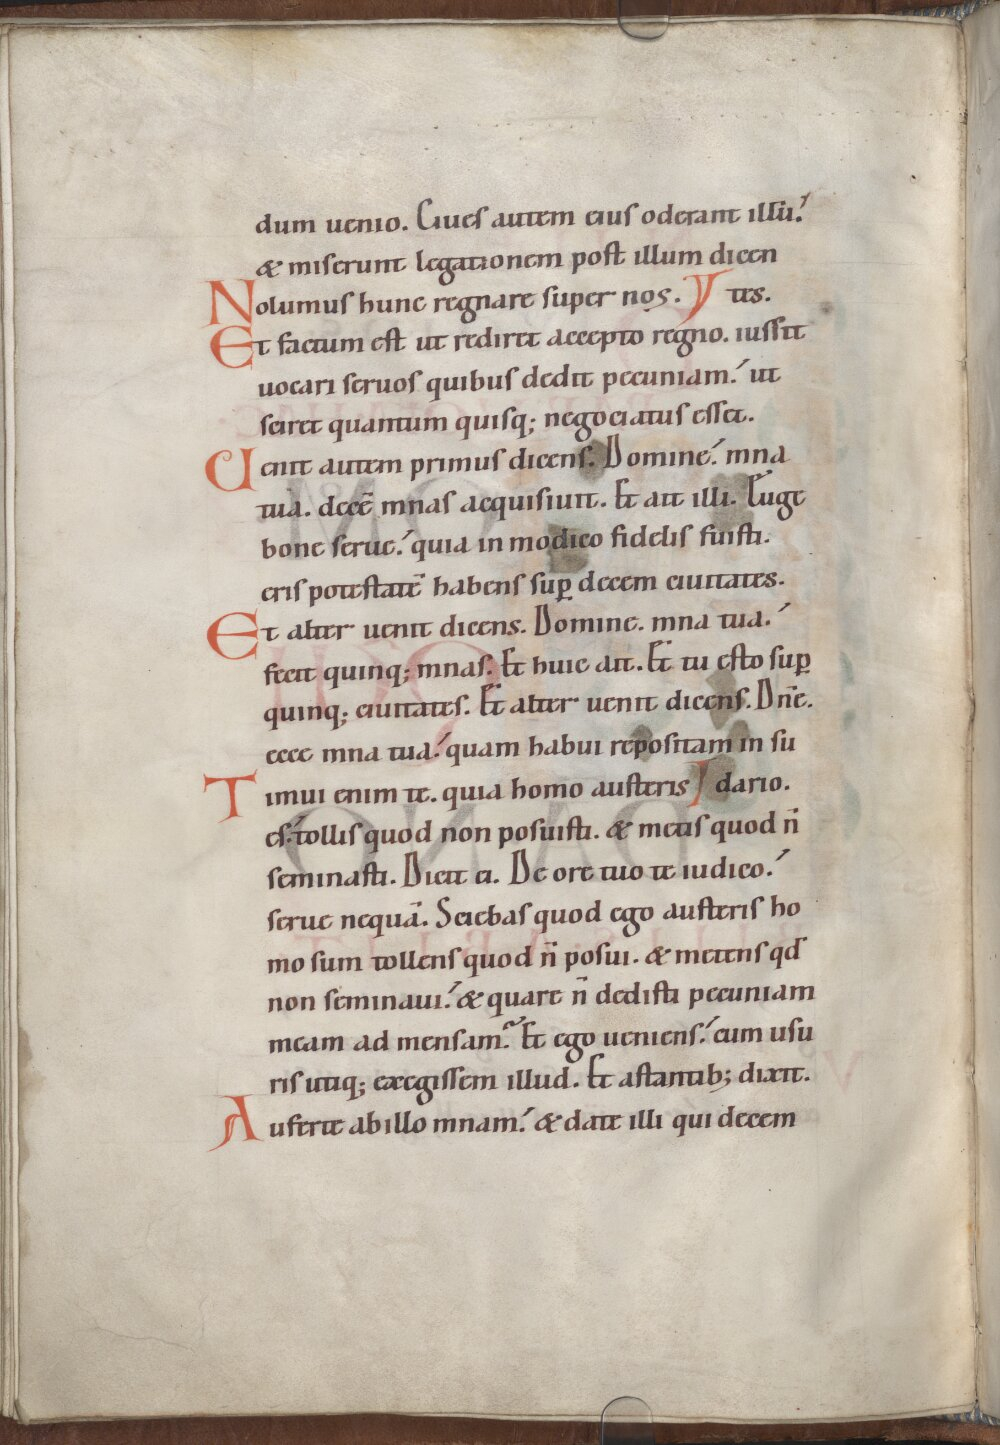 dum uenio. Ciues autem eius oderant illū.
& miserunt legationem post illum dicen
Nolumus hunc regnare super nos. tes.
Et factum est ut rediret accepto regno. iussit
uocari seruos quibus dedit pecuniam. ut
sciret quantum quisq; negociatus esset.
Uenit autem primus dicens. Domine. mna
tua. decē mnas acquisiuit. Et ait illi. Euge
bone serue. quia in modico fidelis fuisti.
eris potestatē habens sup̱ decem ciuitates.
Et alter uenit dicens. Domine. mna tua.
fecit quinq; mnas. Et huic ait. Et tu esto sup̱
quinq; ciuitates. Et alter uenit dicens. Dn̄e.
ecce mna tua. quam habui repositam in su
Timui enim te. quia homo austeris dario.
es. tollis quod non posuisti. & metis quod n̄
seminasti. Dicit ei. De ore tuo te iudico.
serue nequā. Sciebas quod ego austeris ho
mo sum tollens quod n̄ posui. & metens qd
non seminaui. & quare n̄ dedisti pecuniam
meam ad mensam. Et ego ueniens. cum usu
ris utiq; exegissem illud. Et astantib; dixit.
Auferte ab illo mnam. & date illi qui decem